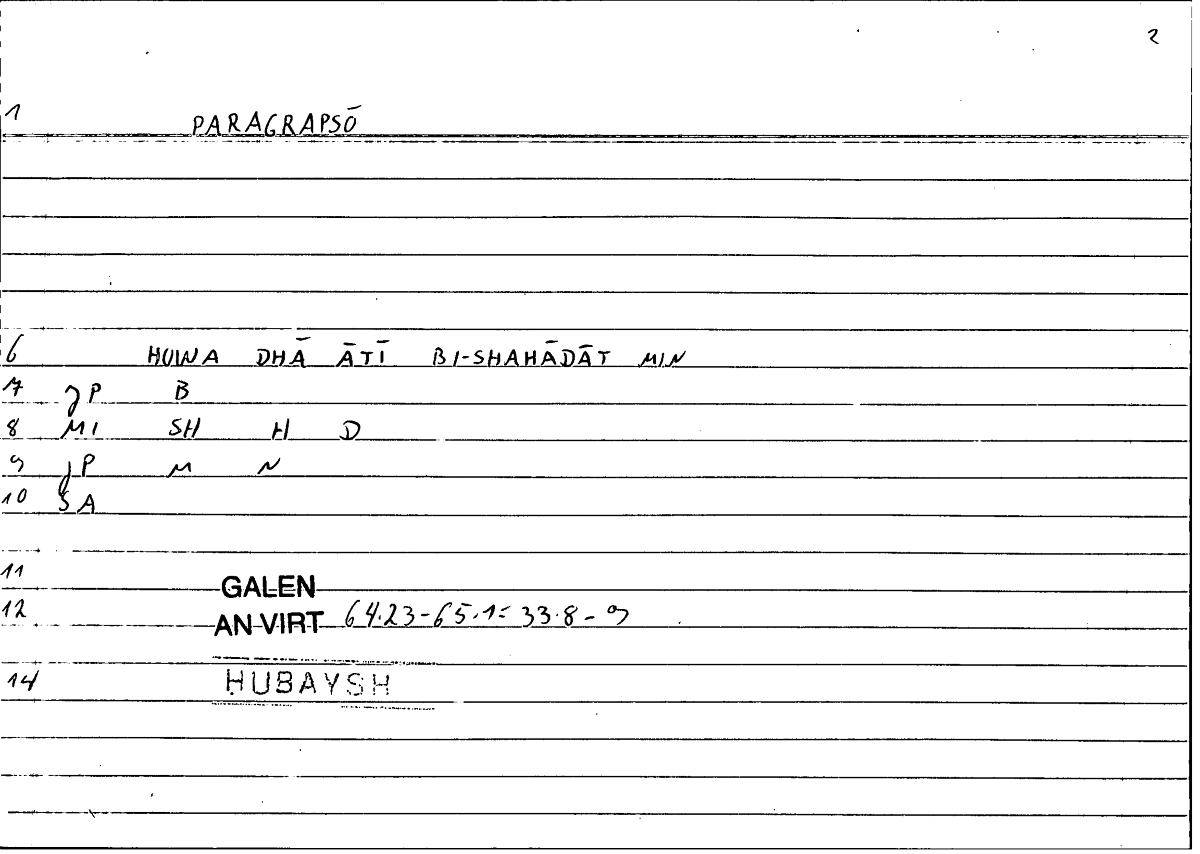 2
1 PARAGRAPSŌ
6 HUWA DHĀ ĀTĪ BI-SHAHĀDĀT MIN
7 JP B
8 MI SH H D
9 JP M N
10 SA
11 GALEN
12 AN VIRT 64.23-65.1= 33.8-9
14 ḤUBAYSH